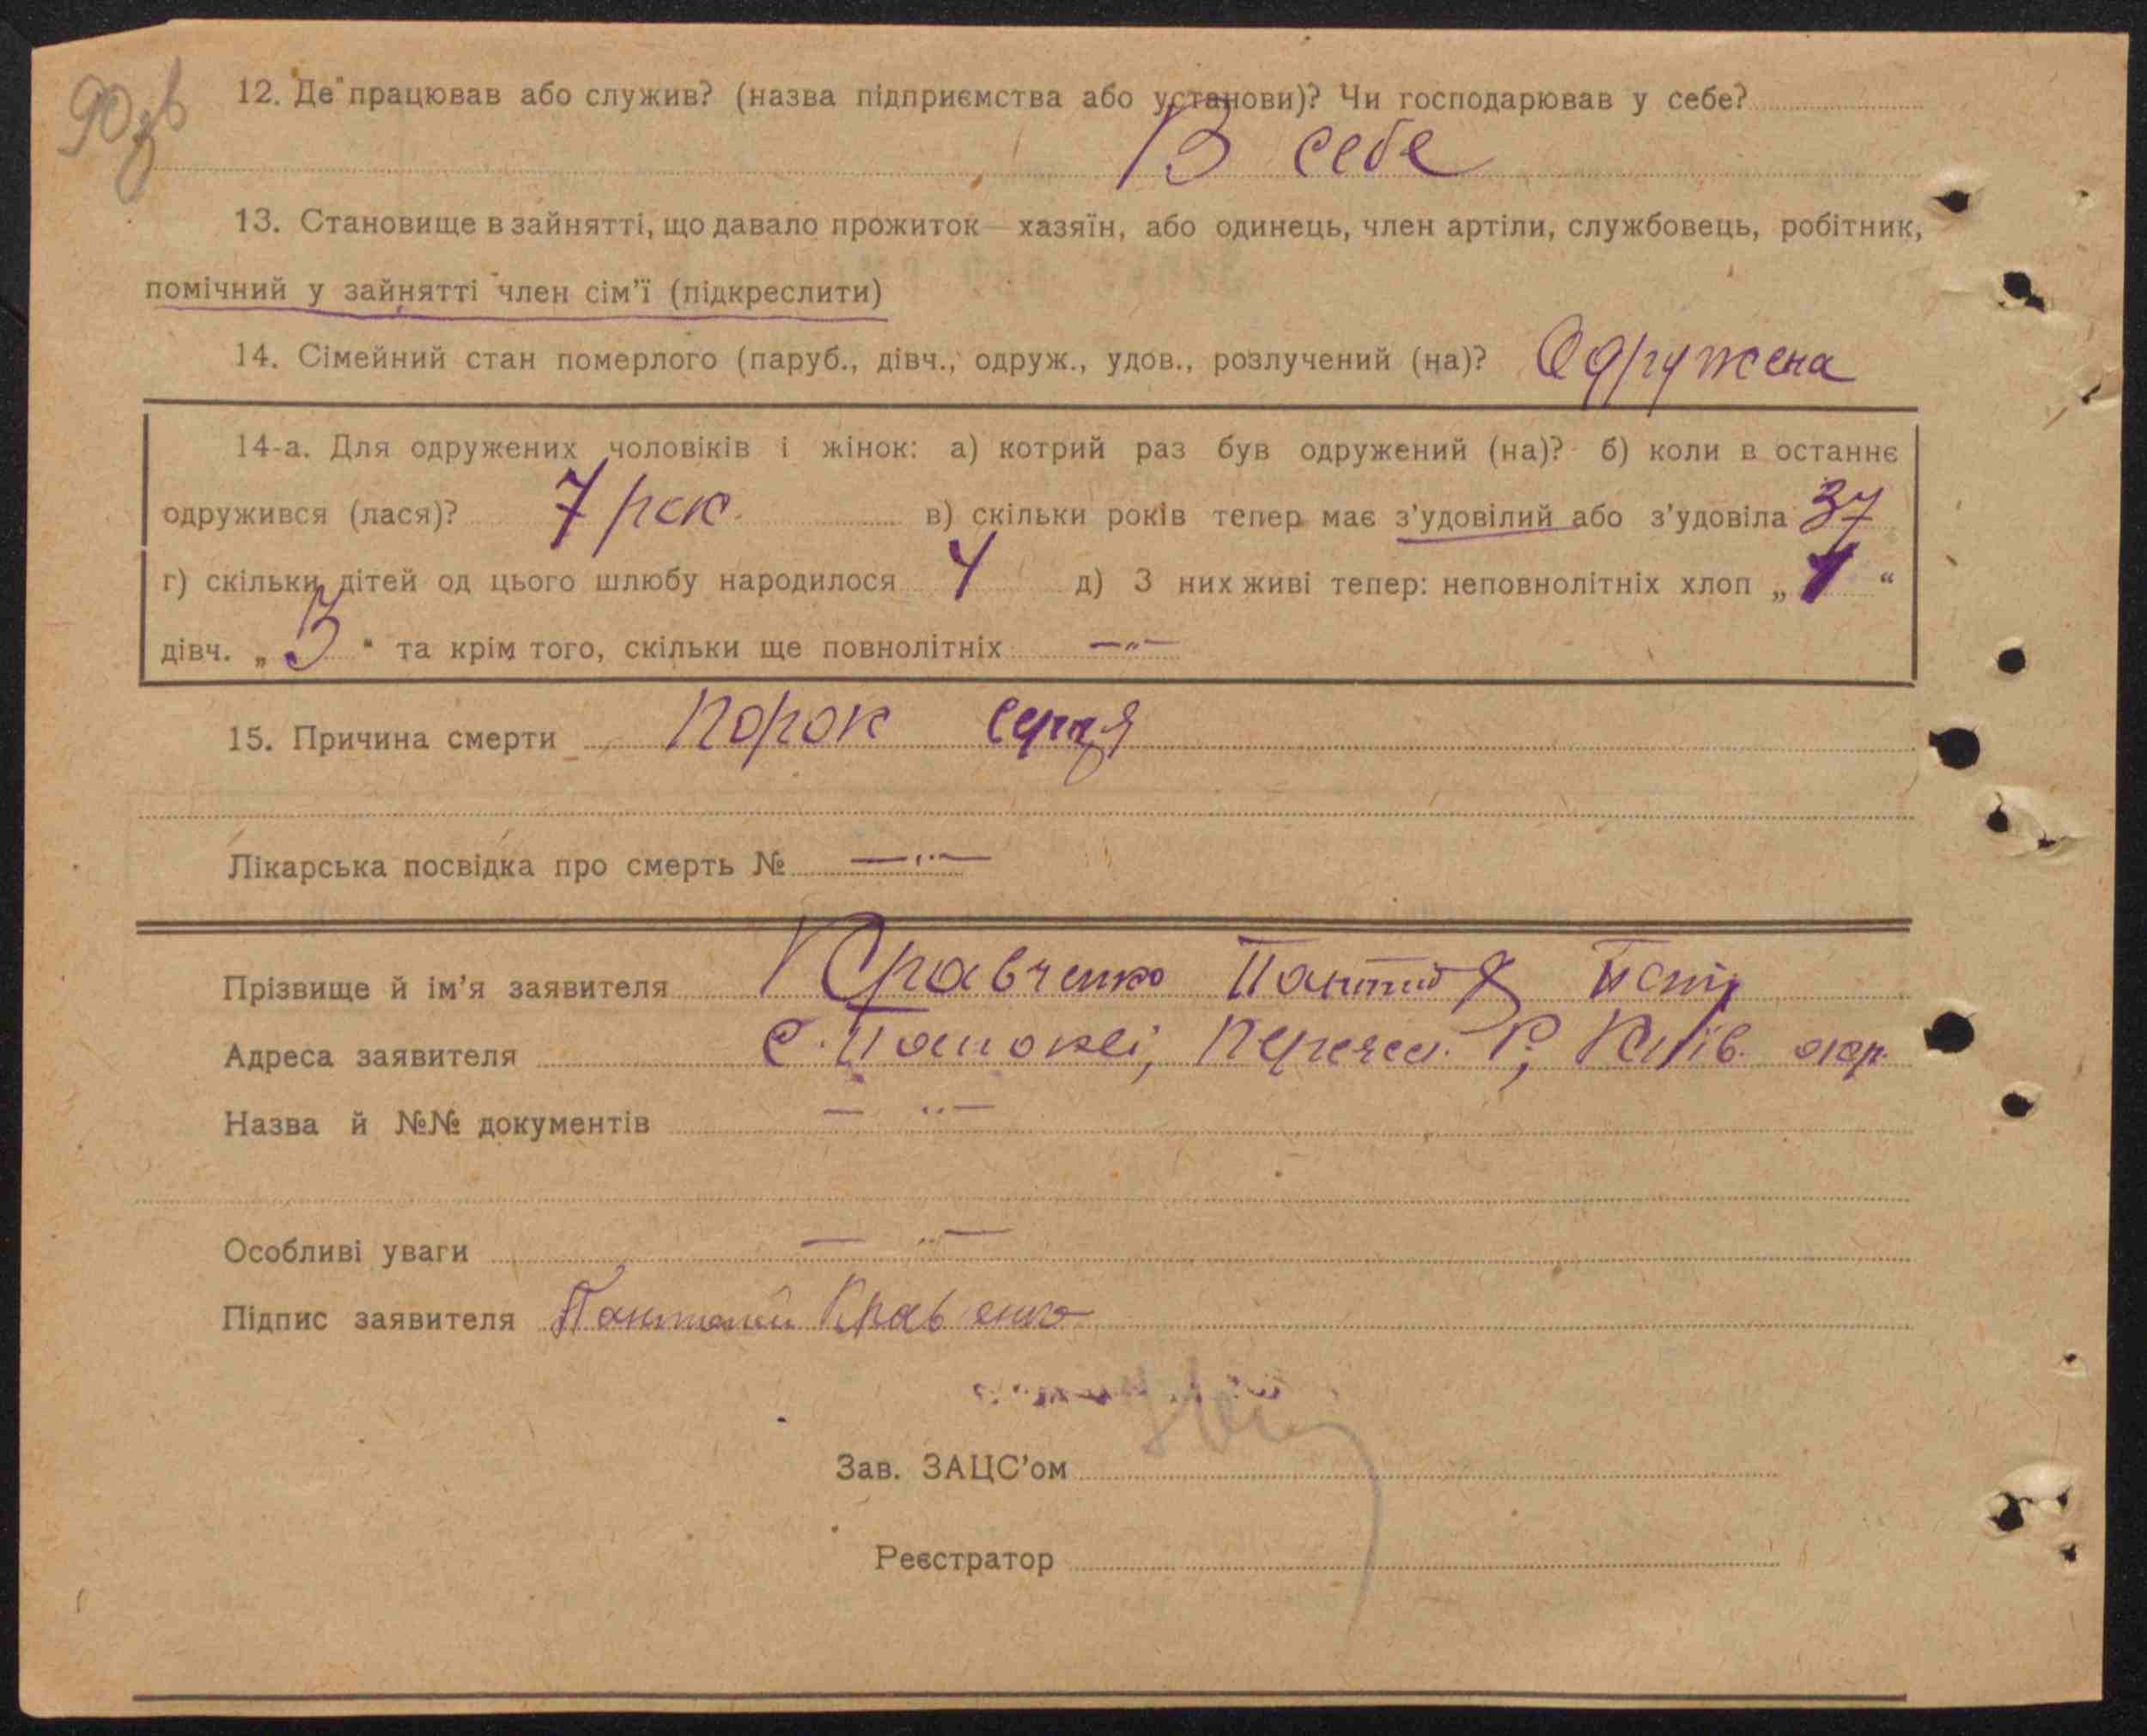 90зв
12. Де працював або служив? (назва підприємства або установи)? Чи господарював у себе?
В себе
13. Становище в зайнятті, що давало прожиток — хазяїн, або одинець, член артіли, службовець, робітник,
помічний у зайнятті член сім'ї (підкреслити)
14. Сімейний стан померлого (паруб., дівч., одруж., удов., розлучений (на)? Одружена
14-а. Для одружених чоловіків і жінок: а) котрий раз був одружений (на)? б) коли в останнє
одружився (лася)? 7 рок. в) скільки років тепер має з'удовілий або з'удовіла 37
г) скільки дітей од цього шлюбу народилося 4 д) З них живі тепер: неповнолітніх хлоп „ 1 “
дівч. „ 3 “ та крім того, скільки ще повнолітніх —"—
15. Причина смерти порок серця
Лікарська посвідка про смерть № —"—
Прізвище й ім'я заявителя Кравченко
Адреса заявителя Київ. окр.
Назва й №№ документів — "—
Особливі уваги — "—
Підпис заявителя
Зав. ЗАЦС'ом
Реєстратор